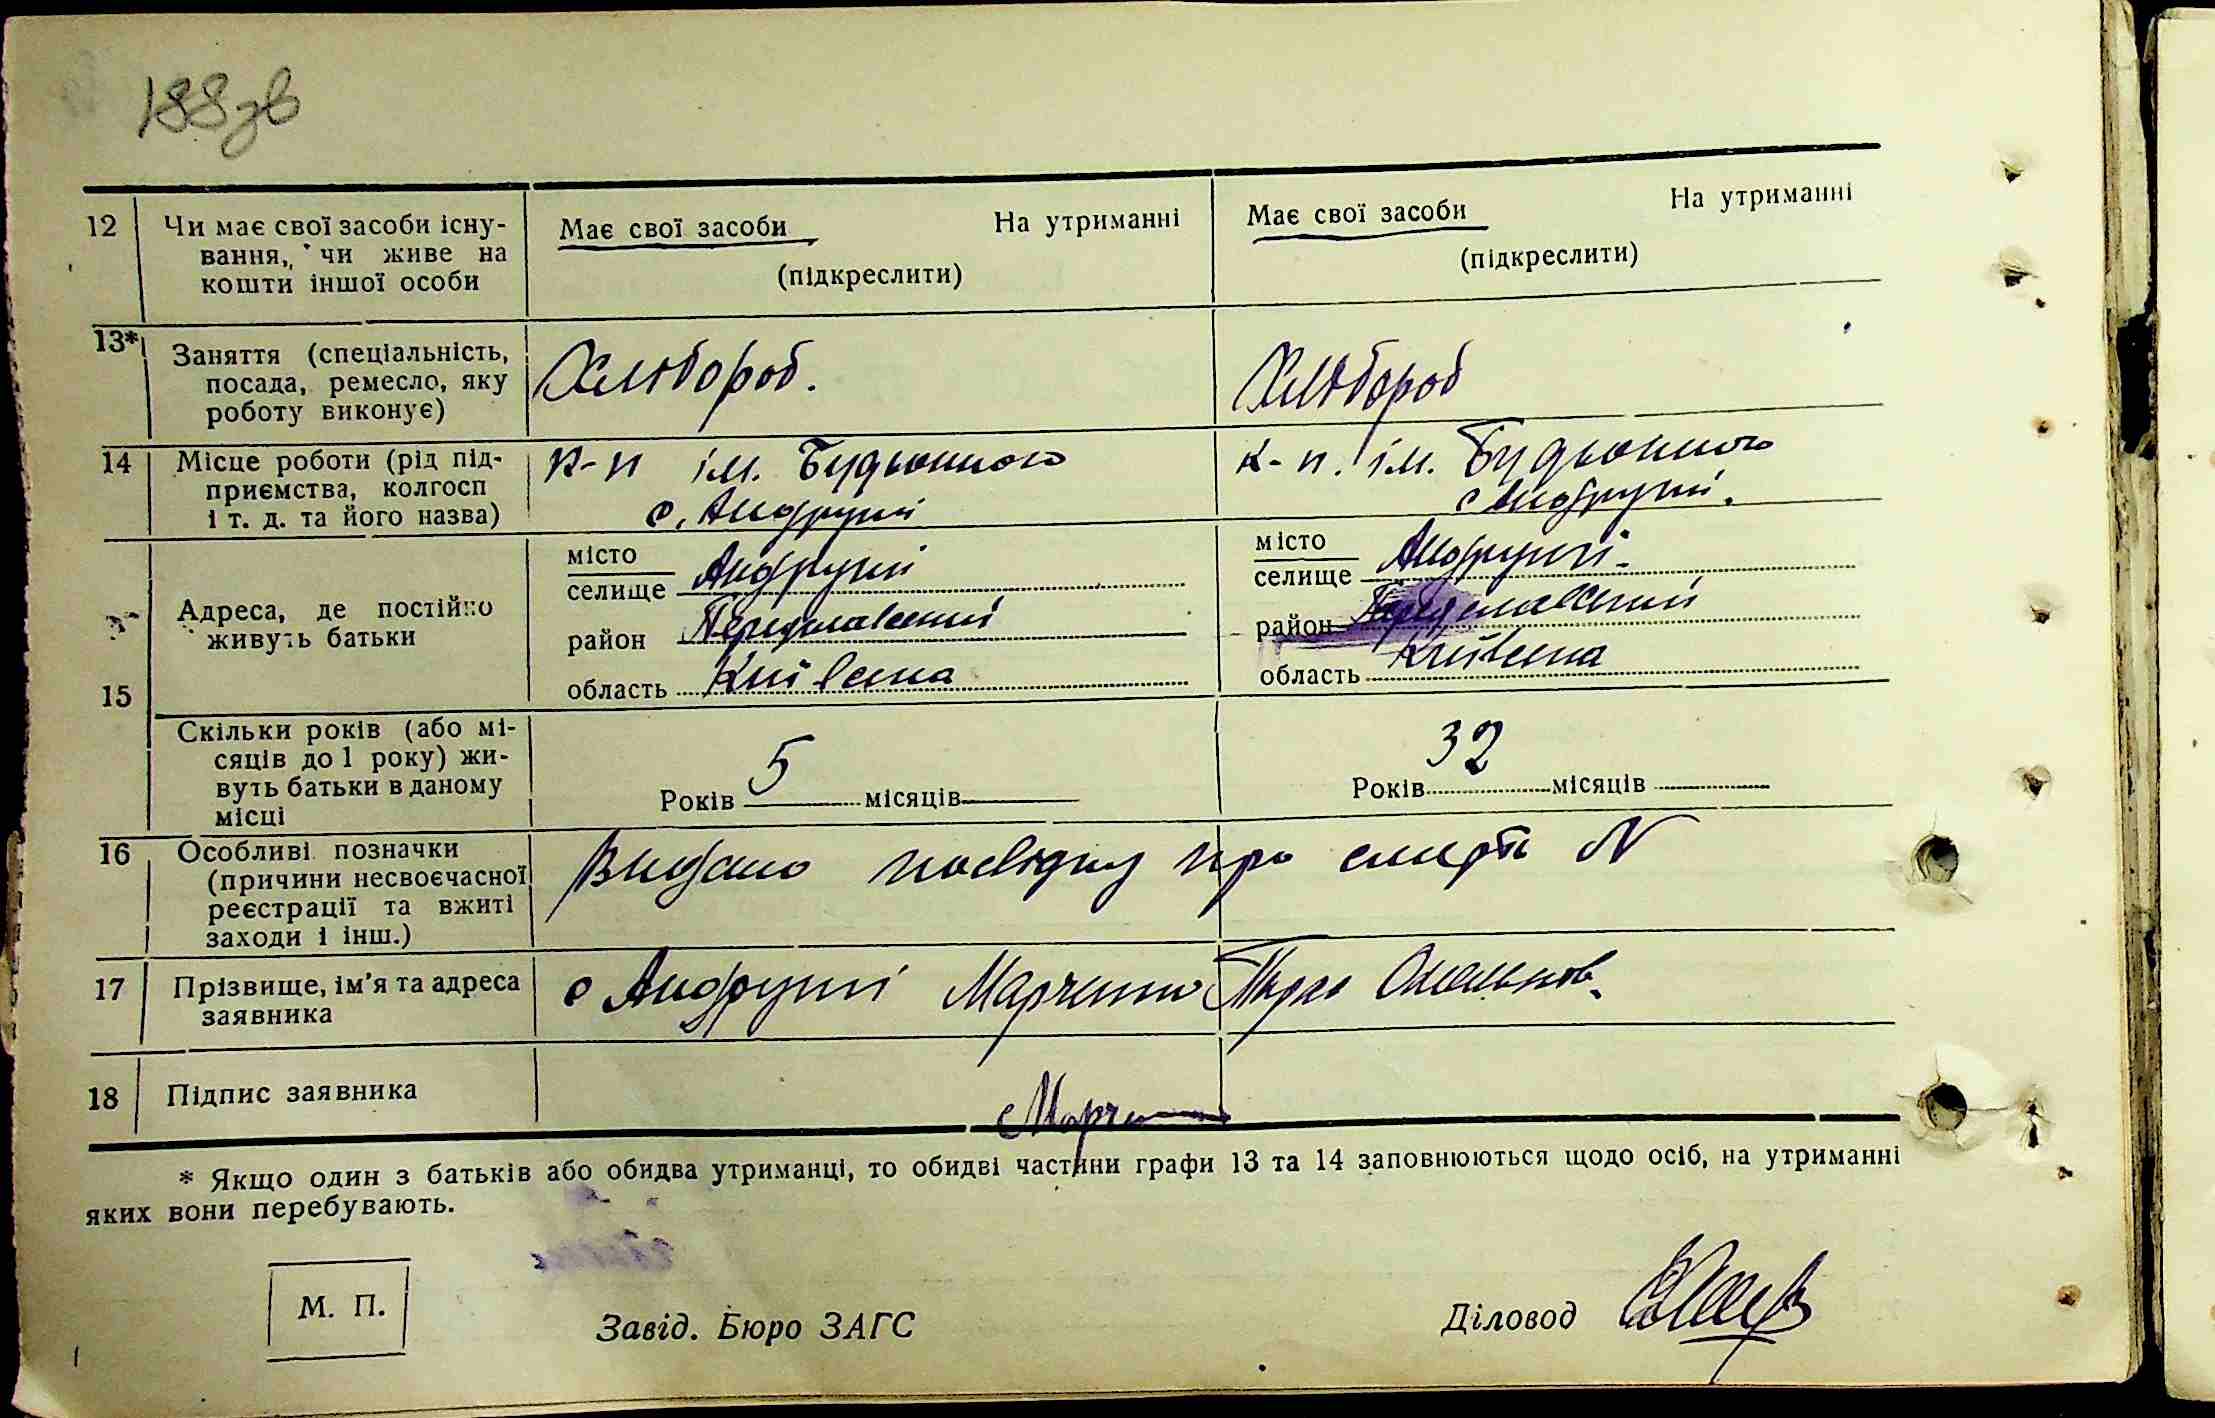 188зв
12 Чи має свої засоби існу-
вання, чи живе на
кошти іншої особи
Має свої засоби На утриманні
(підкреслити)
Має свої засоби На утриманні
(підкреслити)
13* Заняття (спеціальність,
посада, ремесло, яку
роботу виконує)
Хлібороб.
Хлібороб
14 Місце роботи (рід під-
приємства, колгосп
і т. д. та його назва)
к-п ім. Будьонного
с. Андруші
к-п. ім. Будьонного
с Андруші.
15 Адреса, де постійно
живуть батьки
місто
селище Андруші
район Переяславський
область Київська
місто
селище Андруші
район Переяславський
область Київська
Скільки років (або мі-
сяців до 1 року) жи-
вуть батьки в даному
місці
Років 5 місяців
Років 32 місяців
16 Особливі позначки
(причини несвоєчасної
реєстрації та вжиті
заходи і інш.)
Видано посвідку про смерть N
17 Прізвище, ім'я та адреса
заявника
с Андруші Марченко Марко
18 Підпис заявника
* Якщо один з батьків або обидва утриманці, то обидві частини графи 13 та 14 заповнюються щодо осіб, на утриманні
яких вони перебувають.
М. П.
Завід. Бюро ЗАГС
Діловод